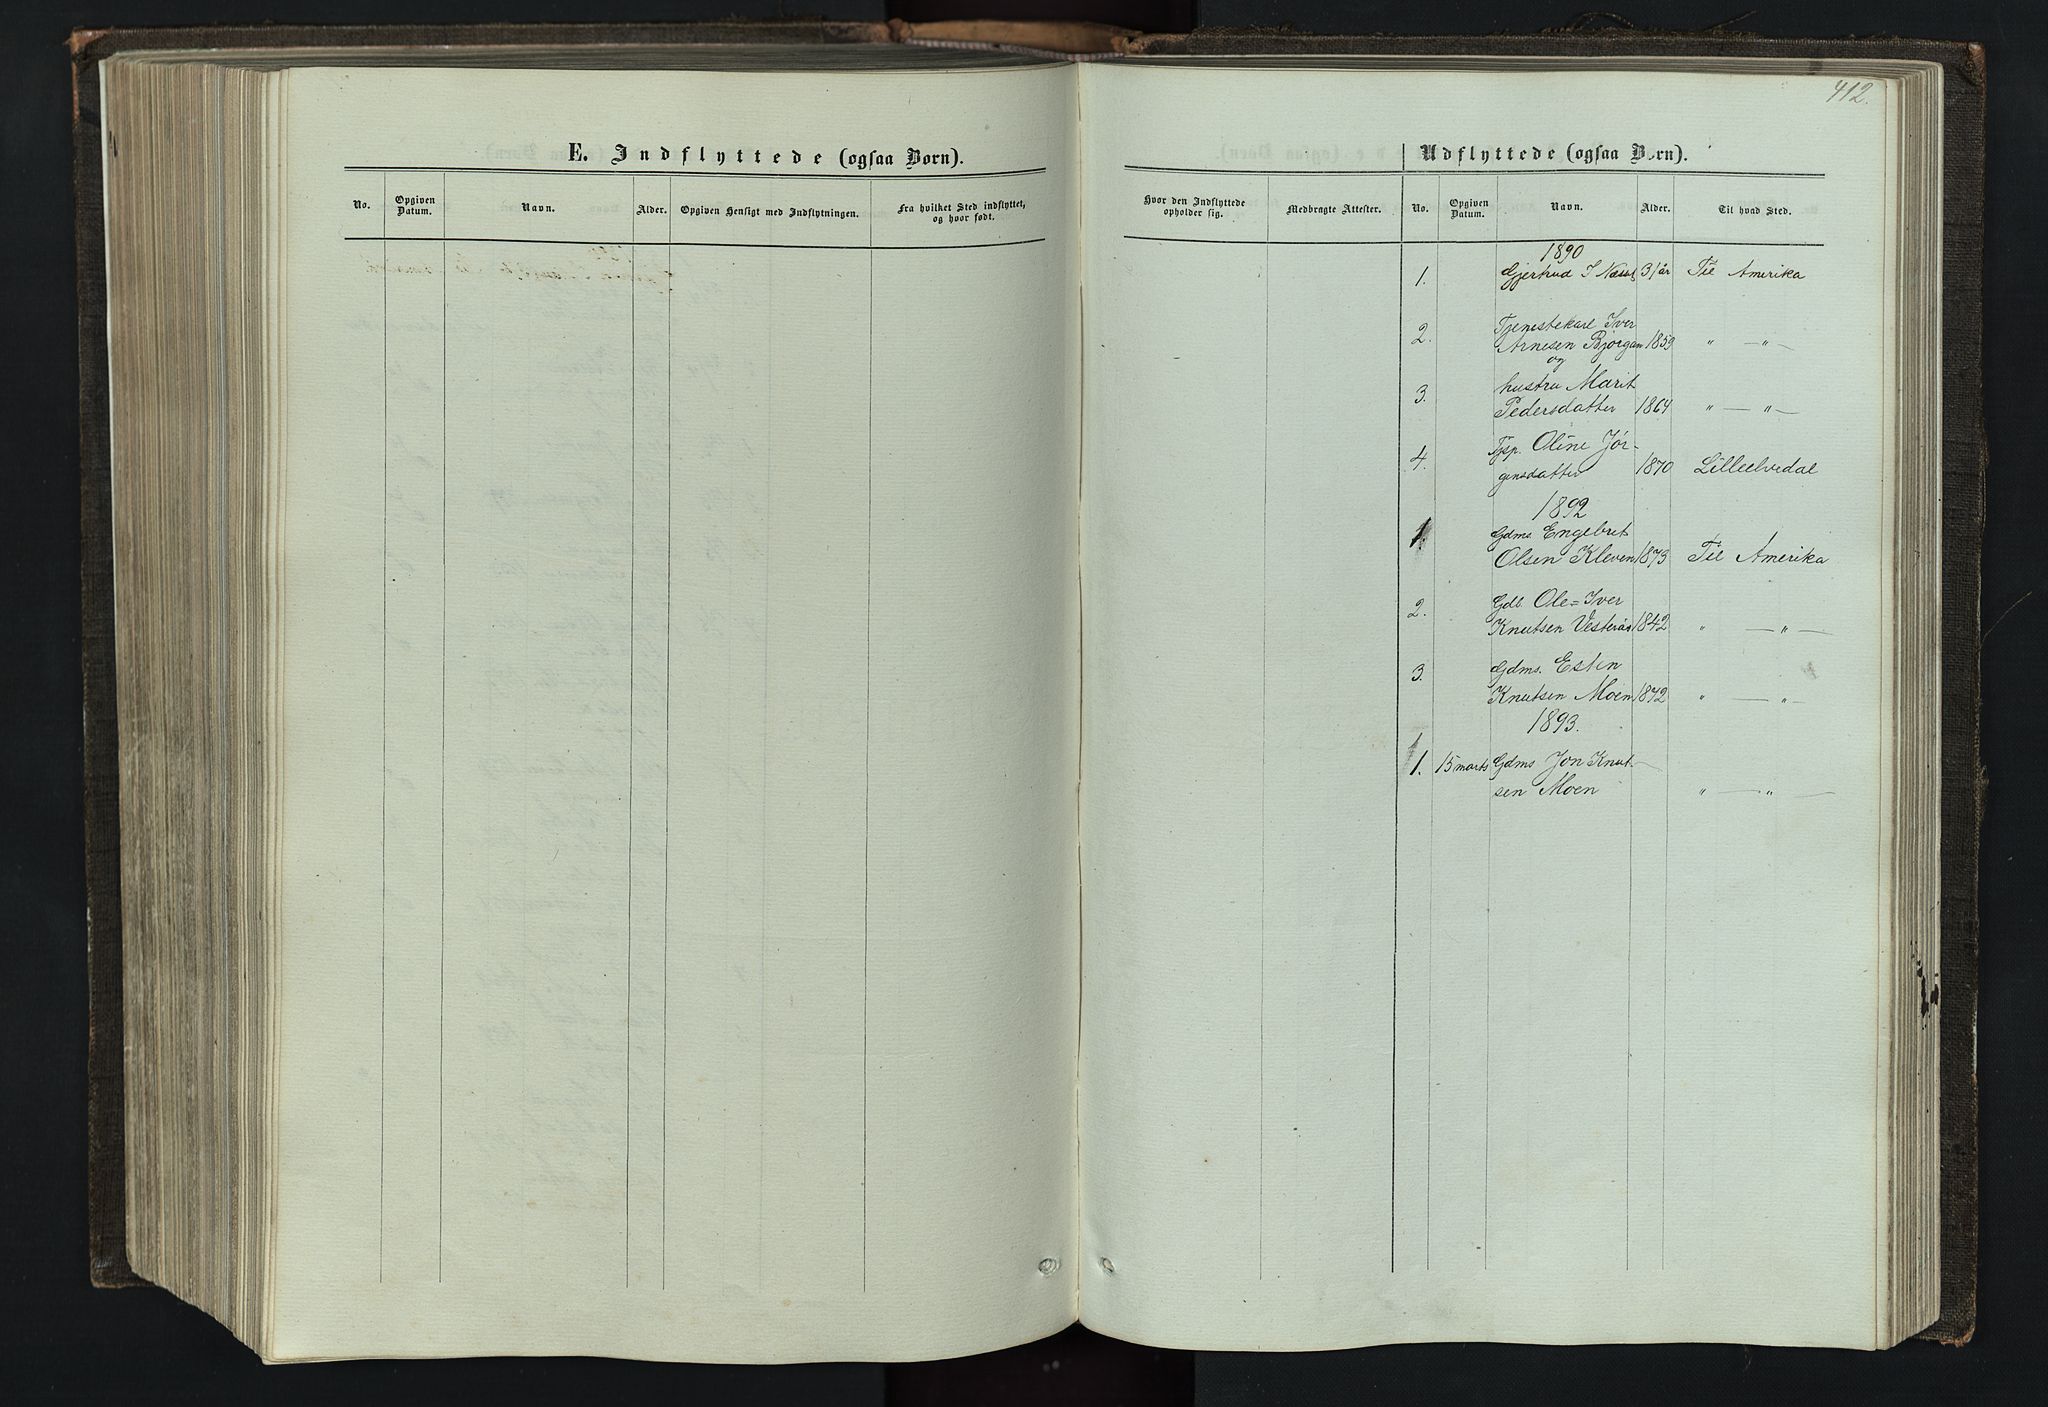 412.
E. Indflyttede (ogsaa Børn).
No.
Opgiven Datum.
Navn.
Alder.
Opgiven Hensigt med Indflytningen.
Fra hvilket Sted indflyttet, og hvor født.
Udflyttede (ogsaa Børn).
Hvor den Indflyttede opholder sig.
Medbragte Attester.
No.
Opgiven Datum.
Navn.
Alder.
Til hvad Sted.
1890
1. Gjertrud I 31 år Til Amerika
Tjenestekarl Iver
2. Arnesen Bjørgan 1859 " — " —
og
3. hustru Marit
Pedersdatter 1864 " — " —
4. Tjsp. Oline Jør-
gensdatter 1870 Lilleelvedal
1892
1. Gdms. Engebret
Olsen Kleven 1873 Til Amerika
2. Gdb. Ole=Iver
Knutsen Vesterås 1842 " — " —
3. Gdms. Esten
Knutsen Moen 1872 " — " —
1893.
1. 15 marts Gdms Jon Knut- —
sen Moen " — " —